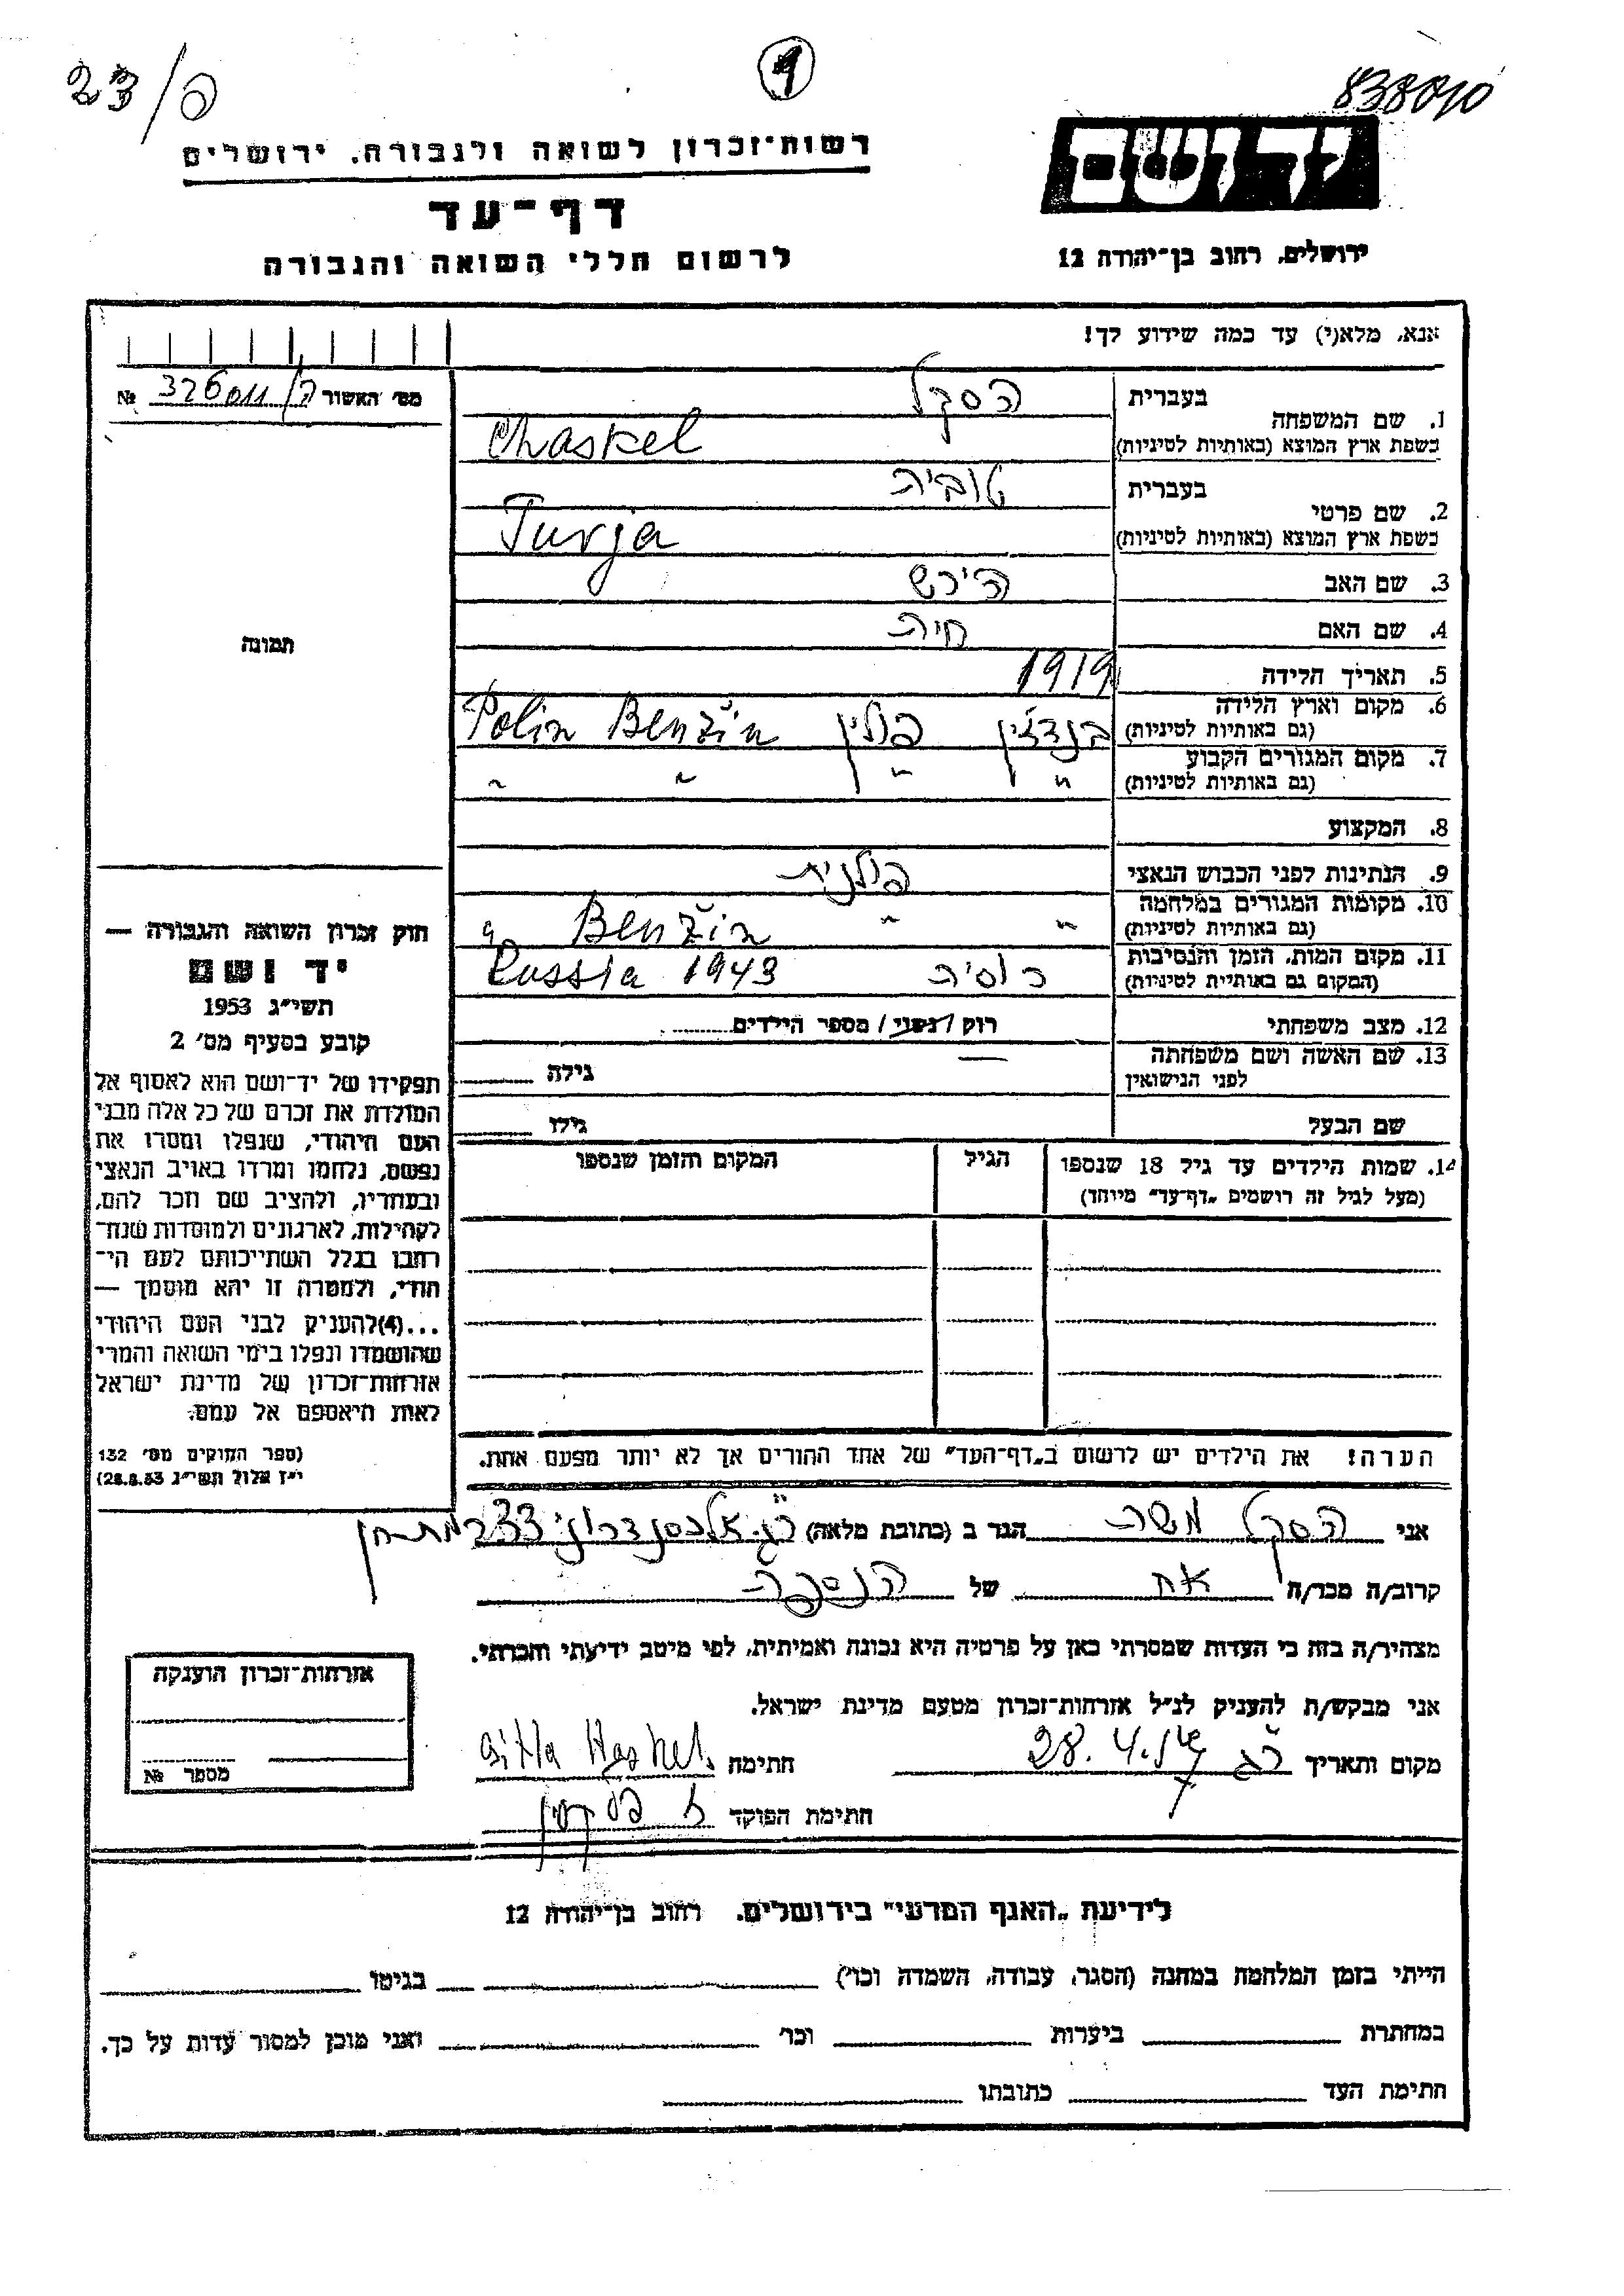 23/ פ
1
838010
רשות־זכרון לשואה ולגבורה, ירושלים
יד ושם
דף־עד
לרשום חללי השואה והגבורה
ירושלים, רחוב בן־יהודה 12
אנא, מלא(י) עד כמה שידוע לך!
מס' האשור № 326011
1. שם המשפחה
בעברית הסקל
בשפת ארץ המוצא (באותיות לטיניות) Chaskel
2. שם פרטי
בעברית טוביה
בשפת ארץ המוצא (באותיות לטיניות) Turja
3. שם האב הירש
4. שם האם חיה
5. תאריך הלידה 1919
6. מקום וארץ הלידה בנדז'ין פולין Polin Benžin
(גם באותיות לטיניות)
7. מקום המגורים הקבוע " " " "
(גם באותיות לטיניות)
8. המקצוע
9. הנתינות לפני הכבוש הנאצי פולנית
10. מקומות המגורים במלחמה " " Benžin
(גם באותיות לטיניות)
11. מקום המות, הזמן והנסיבות רוסיה Russia 1943
(המקום גם באותיית לטיניות)
12. מצב משפחתי רוק / נשוי / מספר הילדים
13. שם האשה ושם משפחתה — גילה
לפני הנישואין
שם הבעל גילו
14. שמות הילדים עד גיל 18 שנספו הגיל המקום והזמן שנספו
(מעל לגיל זה רושמים „דף־עד" מיוחד)
הערה! את הילדים יש לרשום ב„דף־העד" של אחד ההורים אך לא יותר מפעם אחת.
תמונה
חוק זכרון השואה והגבורה —
יד ושם
תשי״ג 1953
קובע בסעיף מס' 2
תפקידו של יד־ושם הוא לאסוף אל
המולדת את זכרם של כל אלה מבני
העם היהודי, שנפלו ומסרו את
נפשם, נלחמו ומרדו באויב הנאצי
ובעוזריו, ולהציב שם וזכר להם,
לקהילות, לארגונים ולמוסדות שנח־
רבו בגלל השתייכותם לעם הי־
הודי, ולמטרה זו יהא מוסמך —
...(4)להעניק לבני העם היהודי
שהושמדו ונפלו בימי השואה והמרי
אזרחות־זכרון של מדינת ישראל
לאות היאספם אל עמם.
(ספר החוקים מס' 132
י״ז אלול תשי״ג 28.8.53)
אני הסקל משה הגר ב (כתובת מלאה) ר״ג אלכסנדרוני
קרוב/ה מכר/ה אח של הנספה
מצהיר/ה בזה כי העדות שמסרתי כאן על פרטיה היא נכונה ואמיתית, לפי מיטב ידיעתי והכרתי.
אני מבקש/ת להעניק לנ״ל אזרחות־זכרון מטעם מדינת ישראל.
מקום ותאריך ר״ג 28.4. חתימה Gitla Haskel
חתימת הפוקד
אזרחות־זכרון הוענקה
מספר №
לידיעת „האגף המדעי" בירושלים, רחוב בן־יהודה 12
הייתי בזמן המלחמה במחנה (הסגר, עבודה, השמדה וכו') בגיטו
במחתרת ביערות וכו' ואני מוכן למסור עדות על כך.
חתימת העד כתובתו